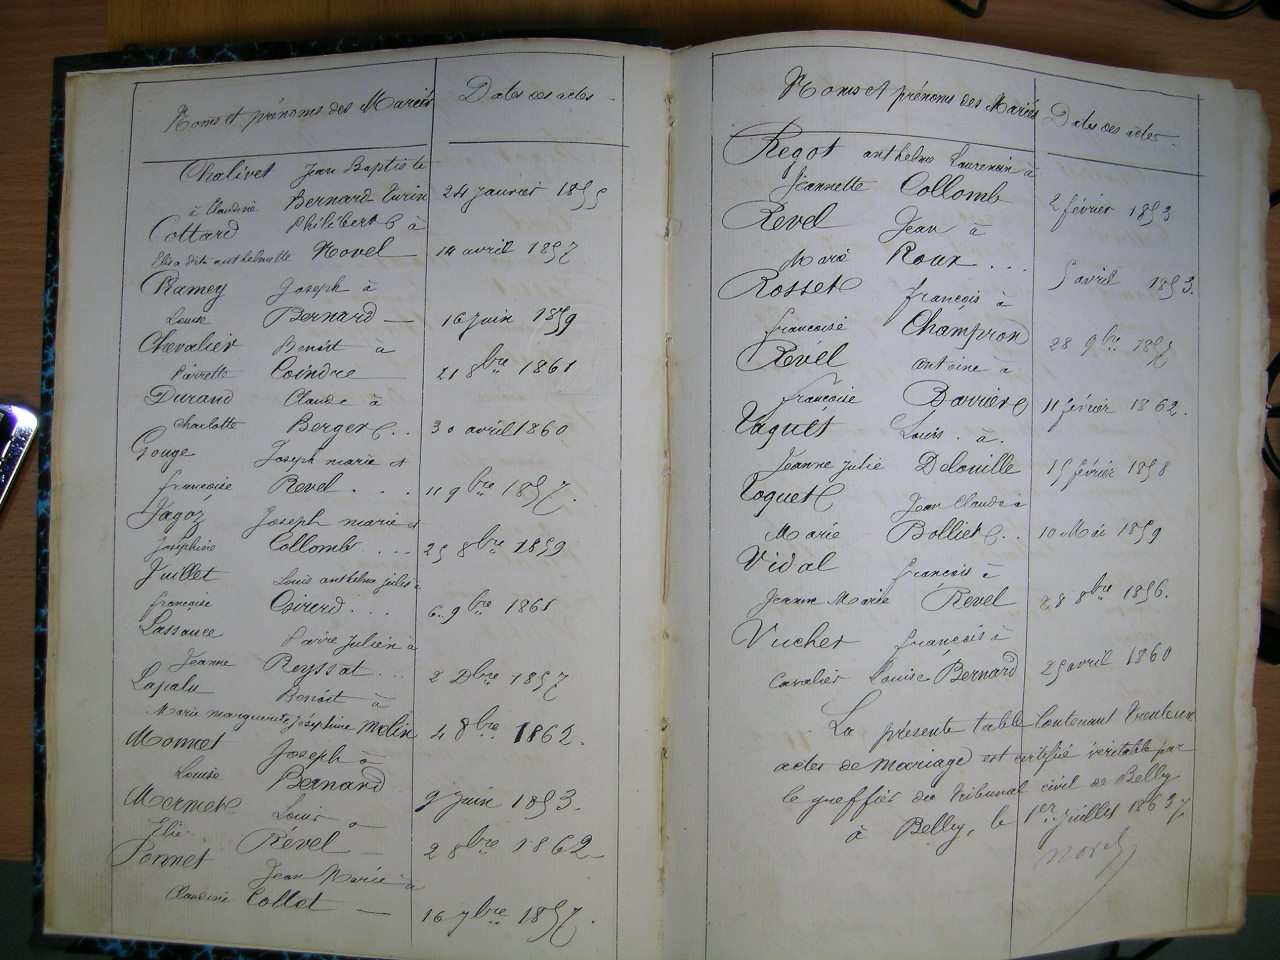 Noms et prénoms des Mariés Dates des actes
Chalivet Jean Baptiste
à Claudine Bernard Turin 24 janvier 1855
Cottard Philibert à
Elisa dite anthelmette Novel 14 avril 1857
Ramey Joseph à
Louise Bernard 16 juin 1859
Chevalier Benoit à
Pierrette Coindre 21 8bre 1861
Durand Claude à
Charlotte Berger .. 30 avril 1860
Gouge Joseph marie et
françoise Revel . . . . 11 9bre 1857.
Jagoz Joseph marie et
Joséphine Collomb . . . . 25 8bre 1859
Juillet Louis anthelme jules à
françoise Girerd . . . 6. 9bre 1861
Lassauce Pierre Julien à
Jeanne Reyssat . . . 2 Dbre 1857
Lapalu Benoit à
Marie marguerite Joséphine Molin 4 8bre 1862.
Monnet Joseph à
Louise Bernard 9 juin 1853.
Mermet Louis à
Revel 2 8bre 1862
Ponnet Jean Marie à
Claudine Collet 16 7bre 1857.
Noms et prénoms des Mariés Dates des actes
Regot anthelme Laurencin à
Jeannette Collomb 2 février 1853
Revel Jean à
Marie Roux . . . 5 avril 1853.
Rosset françois à
françoise Champron 28 9bre 1857
Revel antoine à
françoise Barrière 11 février 1862.
Vaguet Louis . à .
Jeanne Julie Delouille 15 février 1858
Voguet Jean Claude à
Marie Bolliet . . 10 Mai 1859
Vidal françois à
Jeanne Marie Revel 28 8bre 1856.
Vucher françois à
Cavalier Louise Bernard 25 avril 1860
La présente table Contenant trente un
actes de mariage est certifié véritable par
le greffier du tribunal civil de Belley
à Belley, le 1er juillet 1863